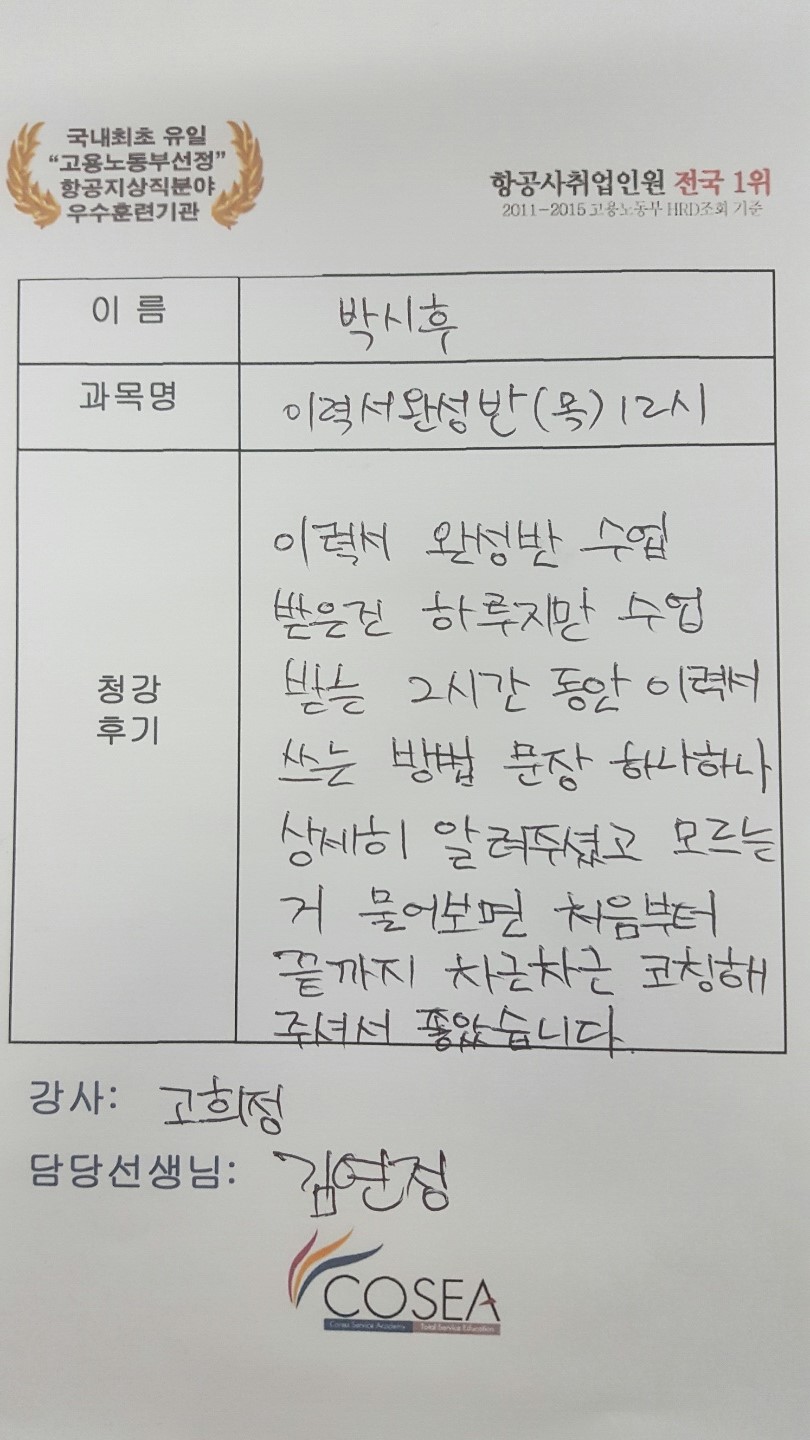 국내최초 유일
“고용노동부선정”
항공지상직분야
우수훈련기관
항공사취업인원 전국 1위
2011-2015 고용노동부 HRD조회 기준
이 름
박시후
과목명
이력서완성반(목) 12시
청강
후기
이력서 완성반 수업
받은건 하루지만 수업
받는 2시간 동안 이력서
쓰는 방법 문장 하나하나
상세히 알려주셨고 모르는
거 물어보면 처음부터
끝까지 차근차근 코칭해
주셔서 좋았습니다.
강사: 고희정
담당선생님: 김연정
COSEA
Cosea Service Academy Total Service Education